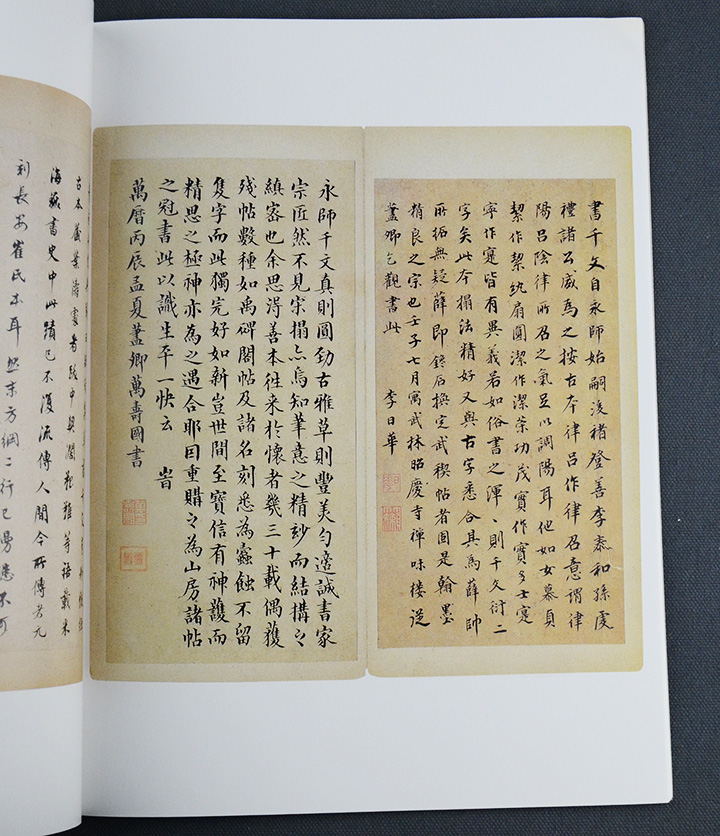 書千文自永師始嗣後褚登善李泰和孫虔
禮諸公咸爲之按古本律呂作律召意謂律
陽呂陰律所召之氣足以調陽耳他如女慕貞
絜作潔紈扇圓潔作潔榮功茂實作實多士寔
寧作寔皆有異義若如俗書之渾、則千文衍二
字矣此本搨法精好又與古字悉合其爲薛帥
所拓無疑薛即鋟石換定武禊帖者固是翰墨
精良之宗也壬子七月寓武林昭慶寺禪味樓從
藎卿乞觀書此
李日華
永師千文真則圓勁古雅草則豐美勻適誠書家
宗匠然不見宋搨亦烏知筆意之精妙而結搆之
縝密也余思得善本往来於懷者幾三十載偶獲
殘帖數種如禹碑閣帖及諸名刻悉為蠹蝕不留
隻字而此獨完好如新豈世間至寶信有神護而
精思之極神亦為之遇合耶因重購之為山房諸帖
之冠書此以識生平一快云 旹
萬曆丙辰孟夏藎卿萬壽圖書
海藏書史中此蹟已不復流傳人間今所傳者元
刻長安崔氏本耳然末方綱二行已漫漶不可